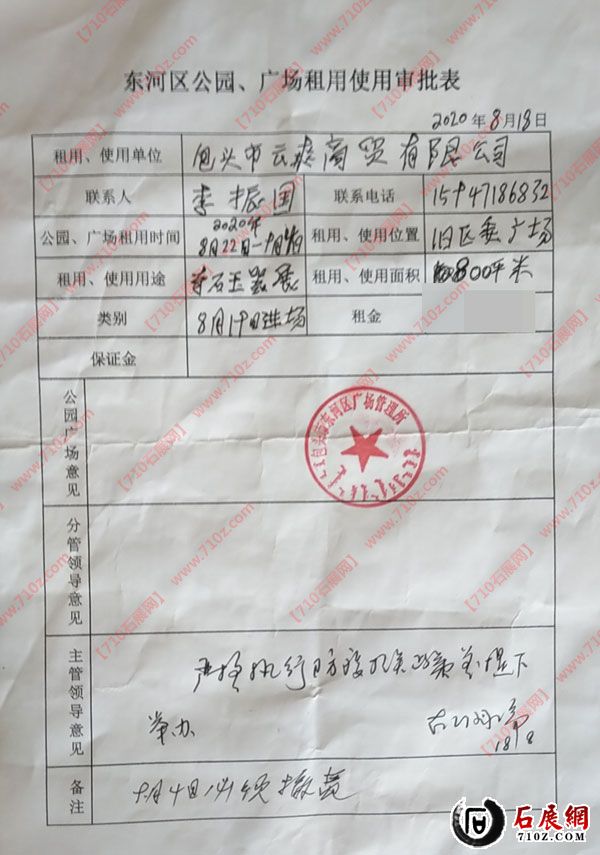 东河区公园、广场租用使用审批表
2020年8月18日
租用、使用单位 包头市云 商贸有限公司
联系人 李振国 联系电话 15947186832
公园、广场租用时间 2020年 8月22日— 租用、使用位置 旧区委广场
租用、使用用途 奇石玉器展 租用、使用面积 800平米
类别 8月19日进场 租金
保证金
公园广场意见
包头市东河区广场管理所
分管领导意见
主管领导意见 严格执行防疫 政策前提下
举办
18/8
备注 月4日必须撤离
【710石展网】
www.710z.com
石展網
710Z.COM